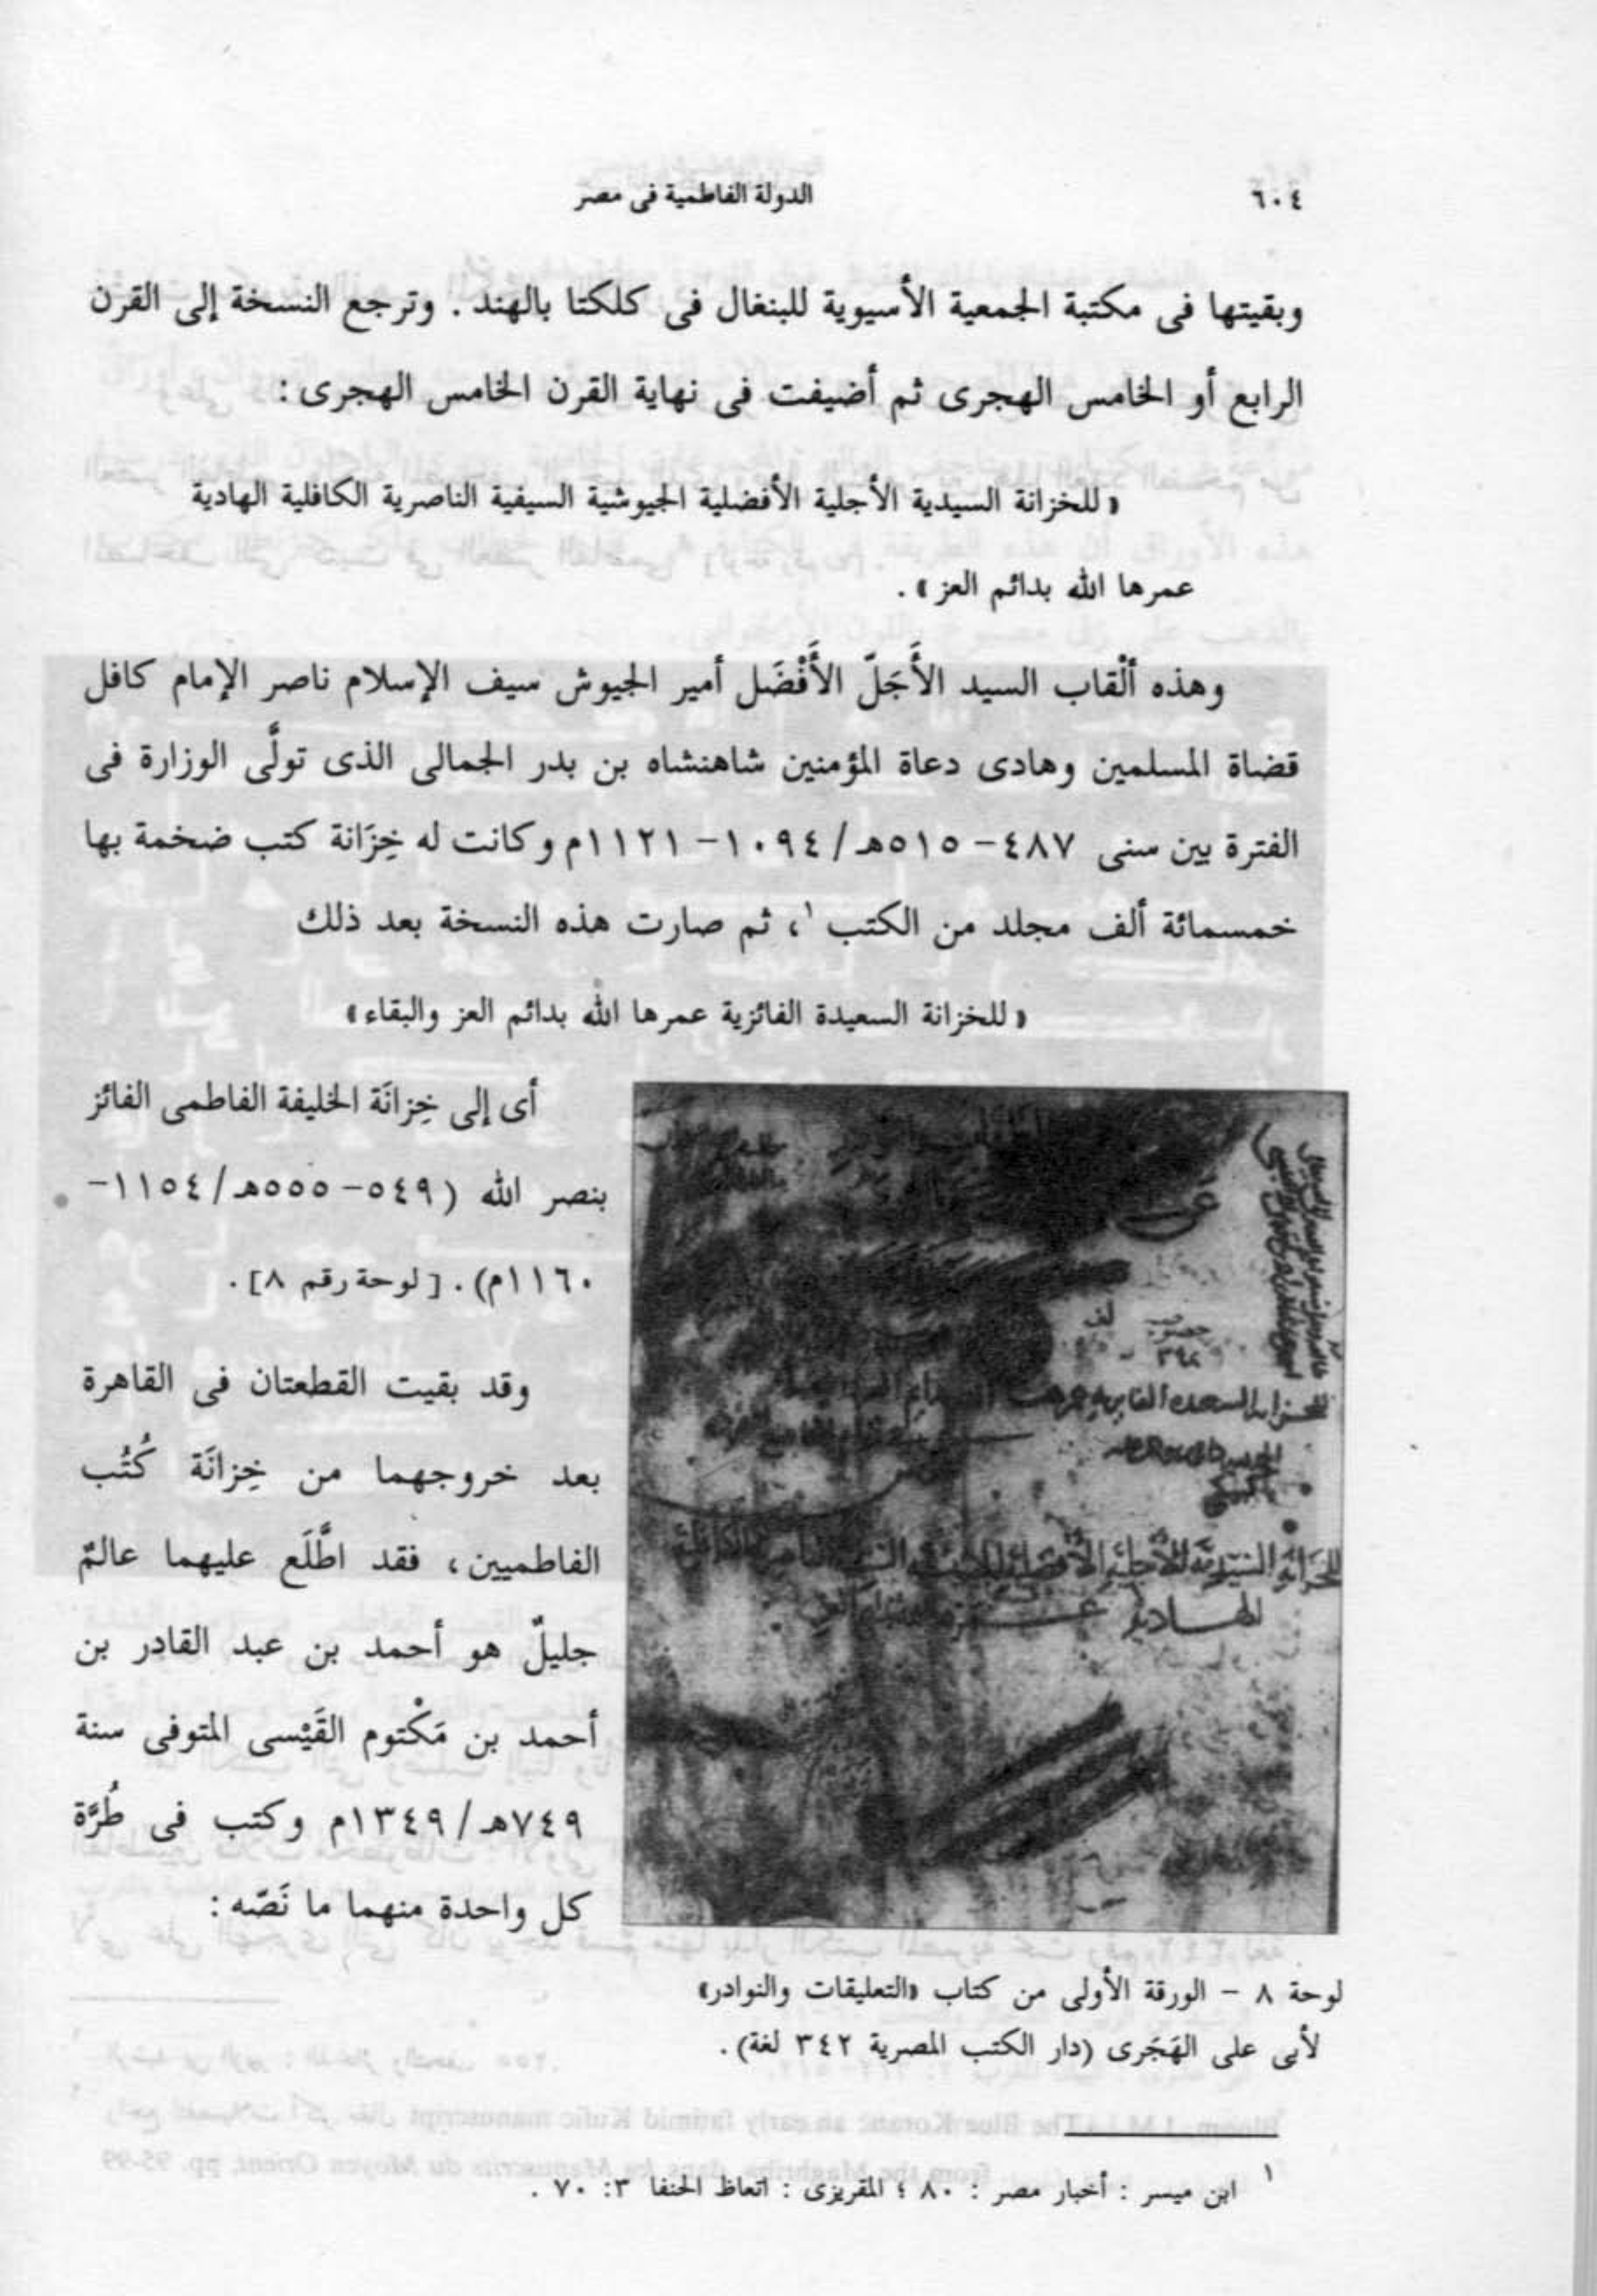 ٦٠٤
الدولة الفاطمية فى مصر
وبقيتها فى مكتبة الجمعية الأسيوية للبنغال فى كلكتا بالهند . وترجع النسخة إلى القرن
الرابع أو الخامس الهجرى ثم أضيفت فى نهاية القرن الخامس الهجرى :
« للخزانة السيدية الأجلية الأفضلية الجيوشية السيفية الناصرية الكافلية الهادية
عمرها الله بدائم العز » .
وهذه ألْقاب السيد الأَجَلّ الأَفْضَل أمير الجيوش سيف الإسلام ناصر الإمام كافل
قضاة المسلمين وهادى دعاة المؤمنين شاهنشاه بن بدر الجمالى الذى تولَّى الوزارة فى
الفترة بين سنى ٤٨٧- ٥١٥هـ/ ١٠٩٤- ١١٢١م وكانت له خِزَانة كتب ضخمة بها
خمسمائة ألف مجلد من الكتب ١، ثم صارت هذه النسخة بعد ذلك
« للخزانة السعيدة الفائزية عمرها الله بدائم العز والبقاء »
أى إلى خِزانَة الخليفة الفاطمى الفائز
بنصر الله (٥٤٩- ٥٥٥هـ/ ١١٥٤-
١١٦٠م) . [ لوحة رقم ٨] .
وقد بقيت القطعتان فى القاهرة
بعد خروجهما من خِزانَة كُتُب
الفاطميين ، فقد اطَّلَع عليهما عالمٌ
جليلٌ هو أحمد بن عبد القادر بن
أحمد بن مَكْتوم القَيْسى المتوفى سنة
٧٤٩هـ/ ١٣٤٩م وكتب فى طُرَّة
كل واحدة منهما ما نَصّه :
للخزانة السيدية الأجلية الأفضلية
الهادية
لوحة ٨ - الورقة الأولى من كتاب «التعليقات والنوادر»
لأبى على الهَجَرى (دار الكتب المصرية ٣٤٢ لغة) .
١ ابن ميسر : أخبار مصر : ٨٠ ؛ المقريزى : اتعاظ الحنفا ٣: ٧٠ .